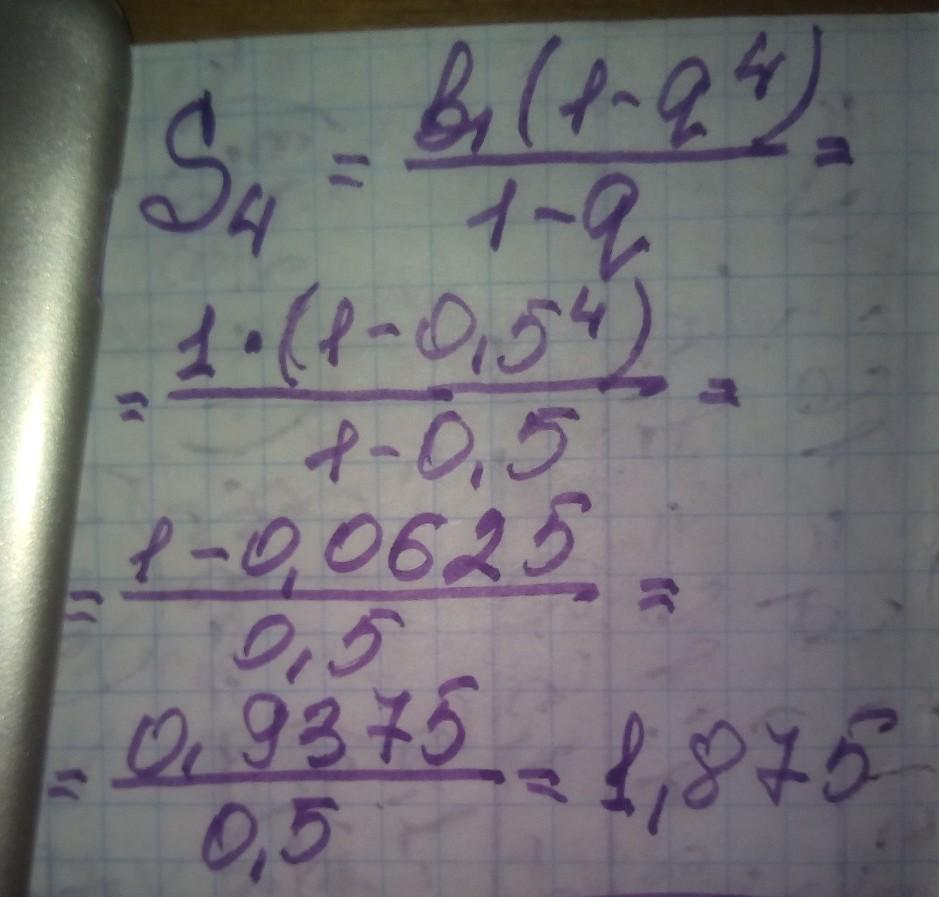 S₄ = b₁(1-q⁴)/1-q =
= 1·(1-0,5⁴)/1-0,5 =
= 1-0,0625/0,5 =
= 0,9375/0,5 = 1,875